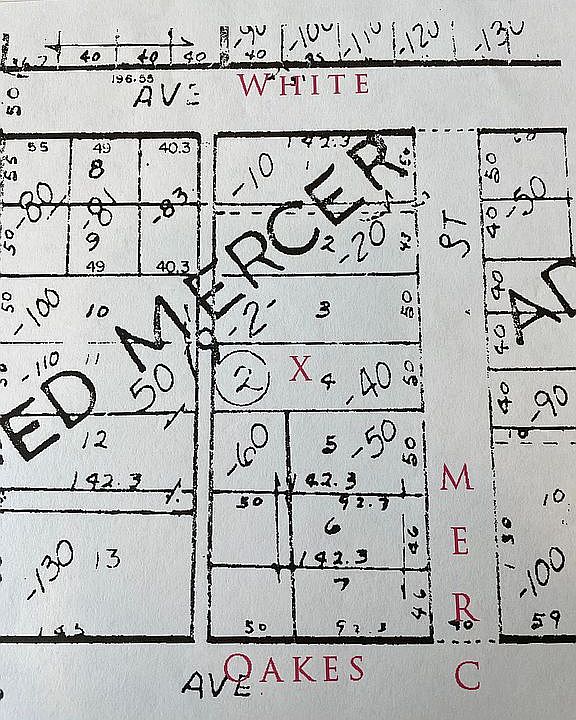 -90 -100 -110 -120 -130
40 40 40 40
196.55
WHITE
AVE
50
55 49 40.3 142.3
8 -10 50 50
-80 -81 -83 -50
50 9 2 -20 40
49 40.3
ST
50 -100 10 -2- 3 50 40
MERCER
-110 11 2 X 4 -40 50 40
ED 50
12 -60 5 -50 50 40 -90
142.3 142.3
50 92.3
M
6 46 10
-130 13 142.3 E
7 -100
46 R
50 92.3 40 59
OAKES
AVE C